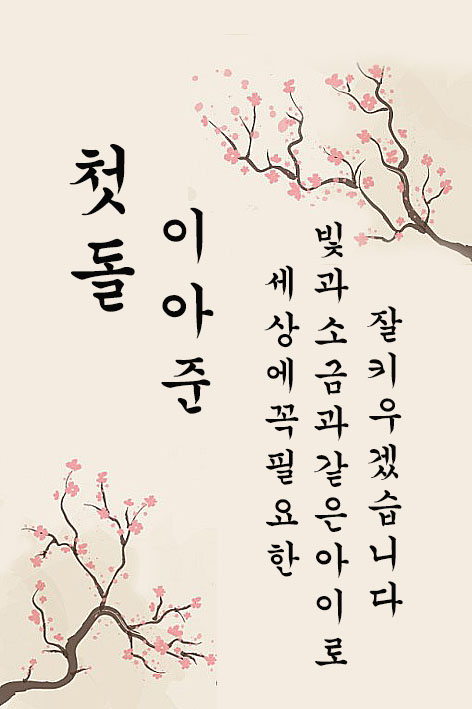 첫돌
이아준
세상에꼭필요한
빛과소금과같은아이로
잘키우겠습니다